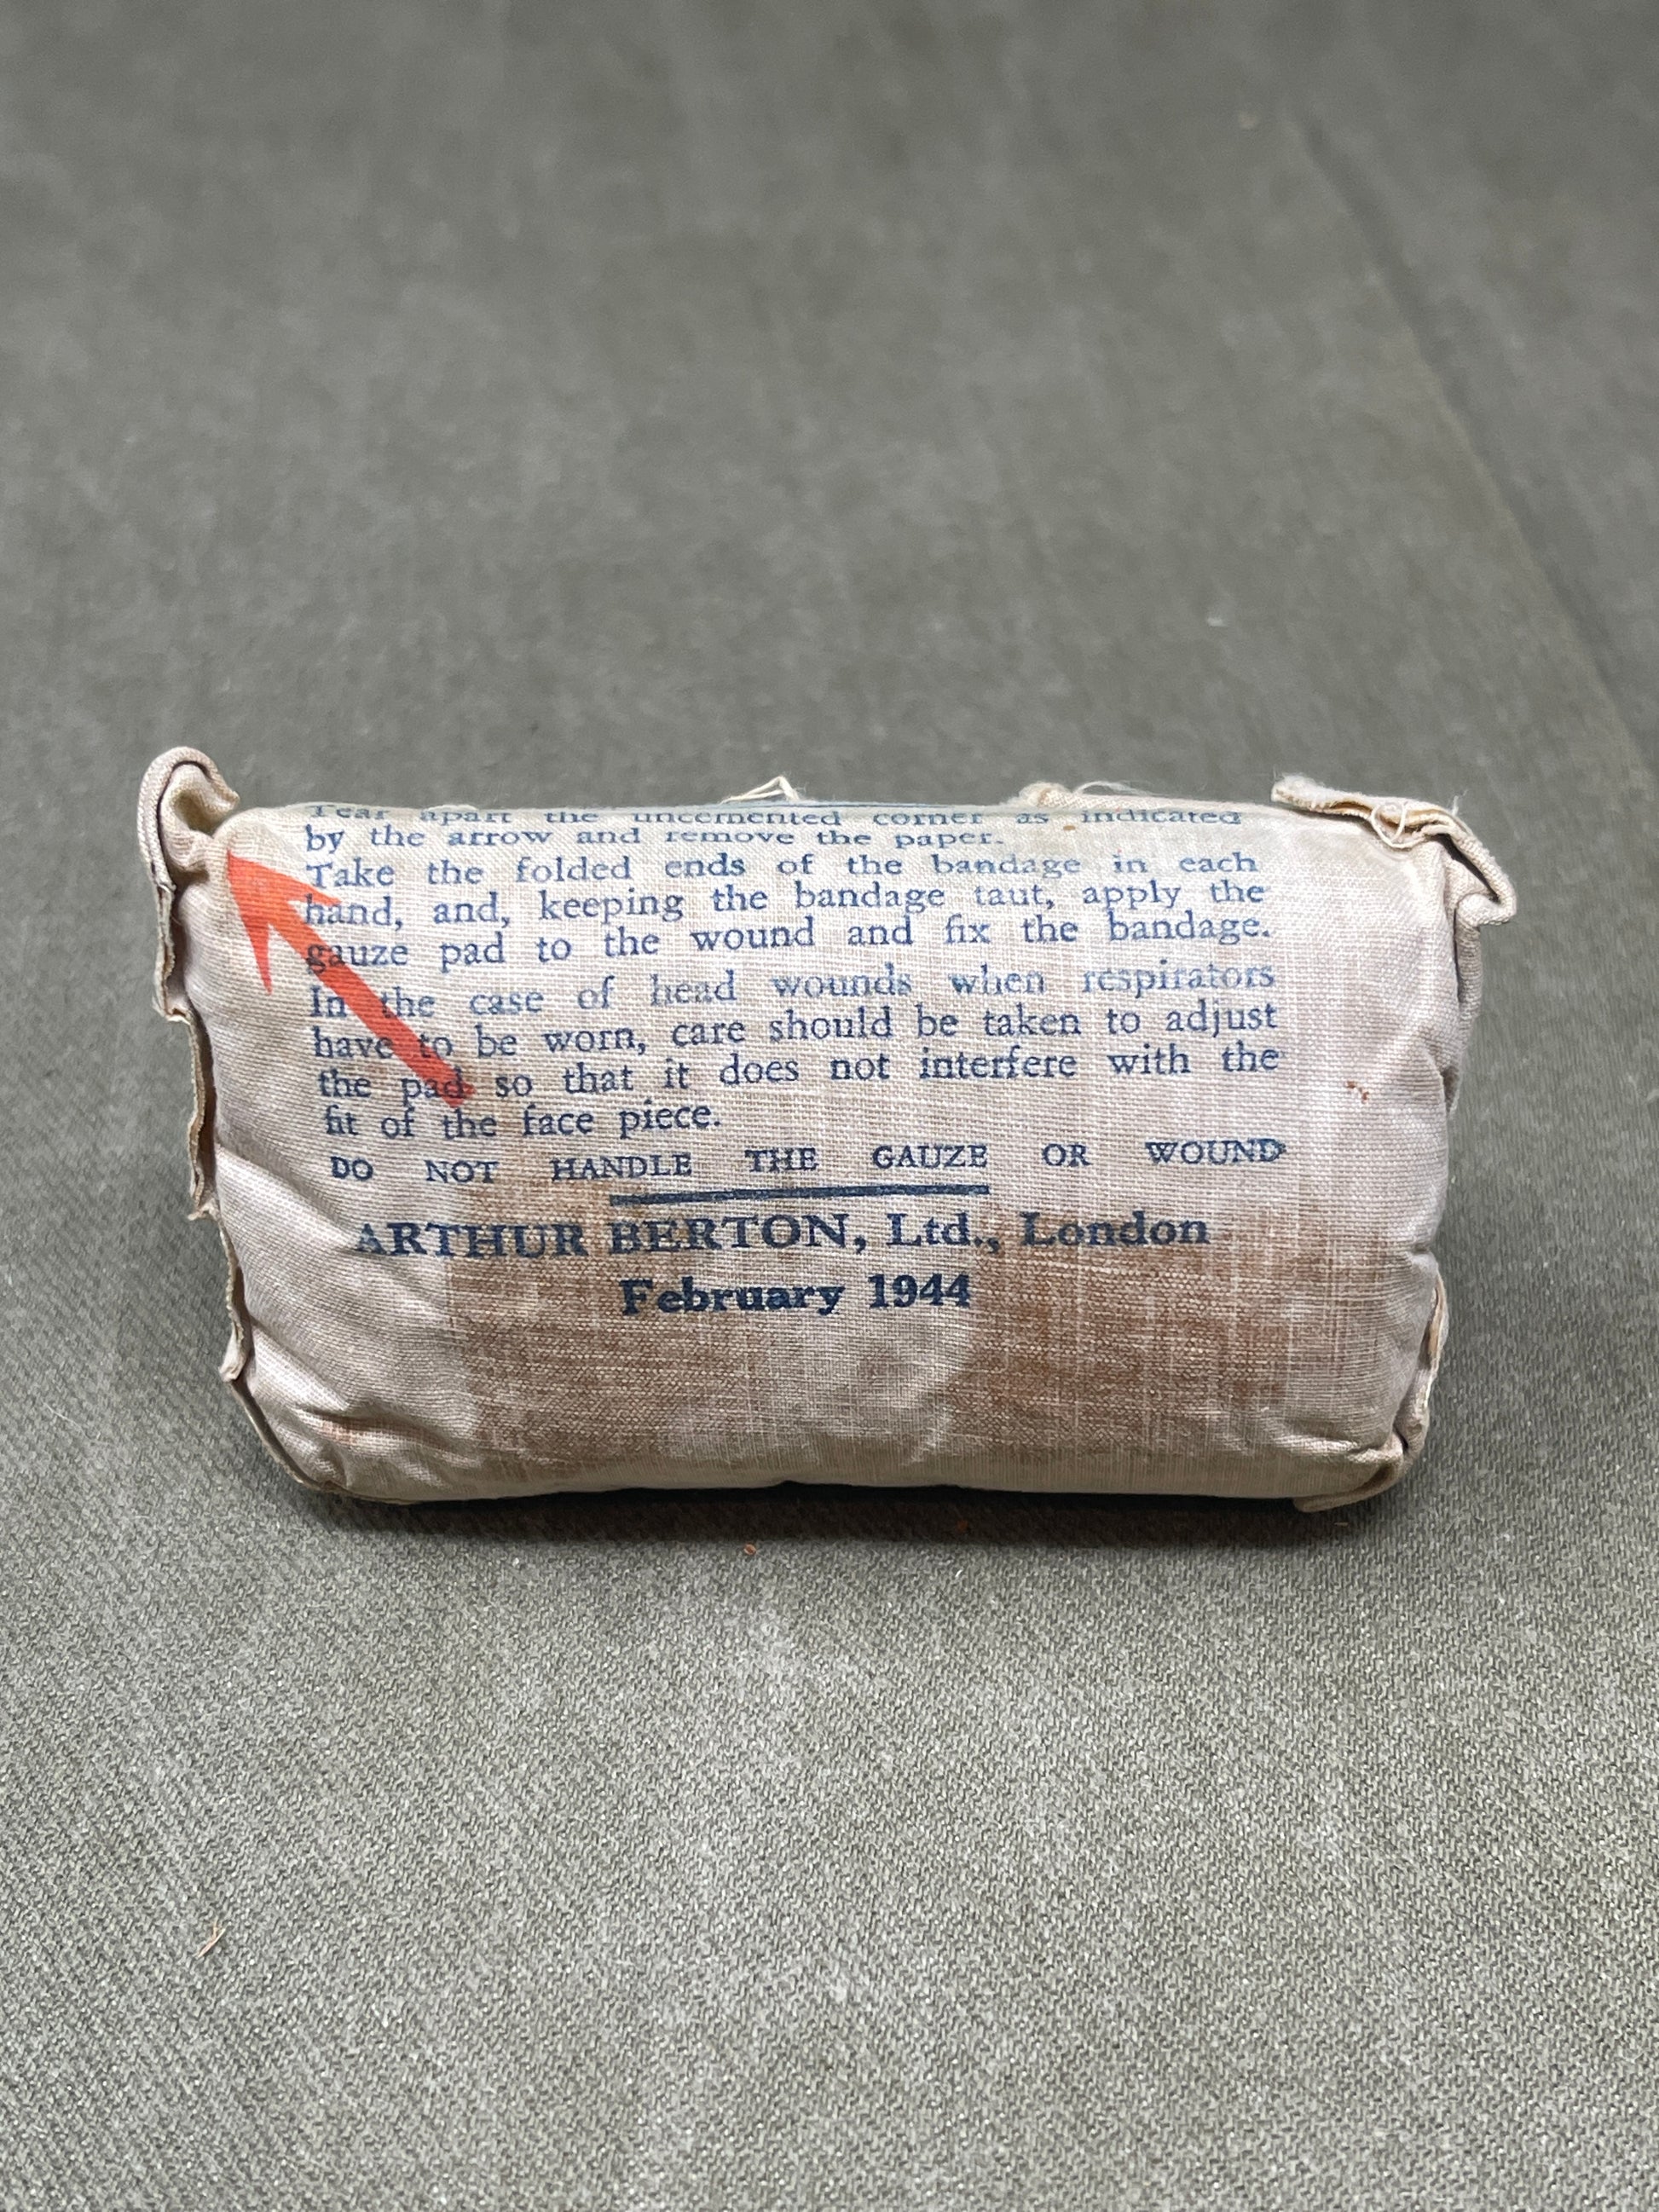 Tear apart the uncemented corner as indicated
by the arrow and remove the paper.
Take the folded ends of the bandage in each
hand, and, keeping the bandage taut, apply the
gauze pad to the wound and fix the bandage.
In the case of head wounds when respirators
have to be worn, care should be taken to adjust
the pad so that it does not interfere with the
fit of the face piece.
DO NOT HANDLE THE GAUZE OR WOUND
ARTHUR BERTON, Ltd., London
February 1944